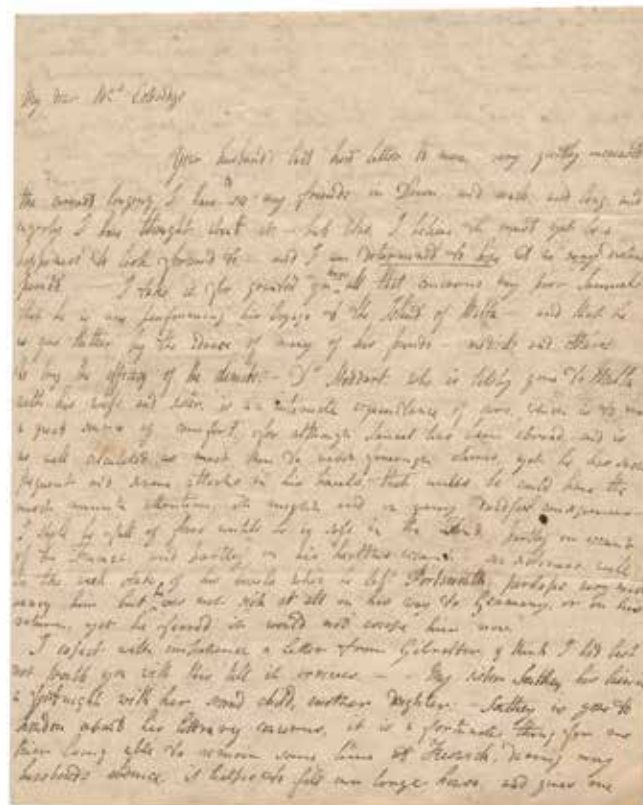 My dear Mrs Coleridge
Your husband's last kind letter to me very greatly increased
the longing I have to see my friends in Devon and
I have thought about it — but this, I believe
happiness to look forward to — and I am determined to
I take it for granted you know all that concerns my poor Samuel
that he is now performing his voyage to the Island of Malta — and that he
is gone thither by the advice of many of his friends — medical and others
to try the efficacy of the climate. — Dr Stoddart who is lately gone to Malta
with his wife and sister is an intimate acquaintance of ours, which is to me
a great source of comfort, for although Samuel has been abroad, and is
as well calculated as most men to
frequent and severe attacks in his bowels that unless he could have the
most minute attentions, its neglect and
I shall be full of fears until he is safe in the Island partly on account
of the French and partly on his health's account
in the weak state of his bowels when he left Portsmouth perhaps very much
injure him but he was not sick at all on his way to Germany, or on his
return, yet he feared it would not
I expect with impatience a letter from Gibraltar, & think I had best
not trouble you with this till it comes. — My sister Southey has
a fortnight with her second child, another daughter. — Southey is gone to
London about his literary concerns, it is a fortunate thing for me
their being able to remain some time at Keswick, during my
husband's absence it helps to fill our large house, and gives me